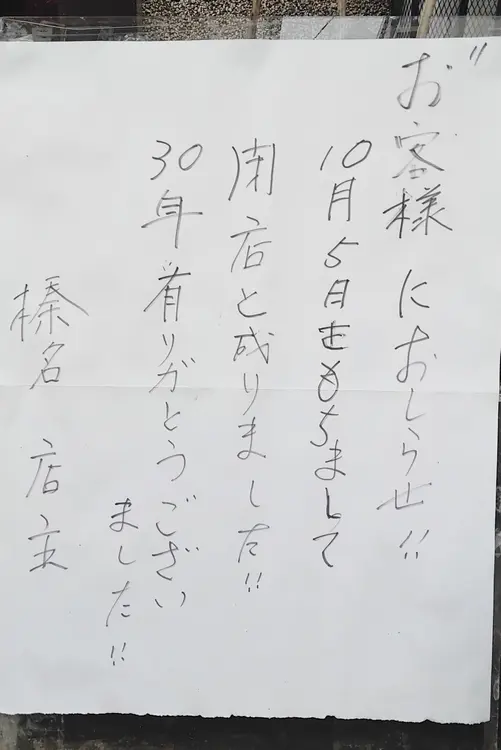 お客様におしらせ!!
10月5日をもちまして
閉店と成りました!!
30年有りがとうござい
ました!!
榛名 店主